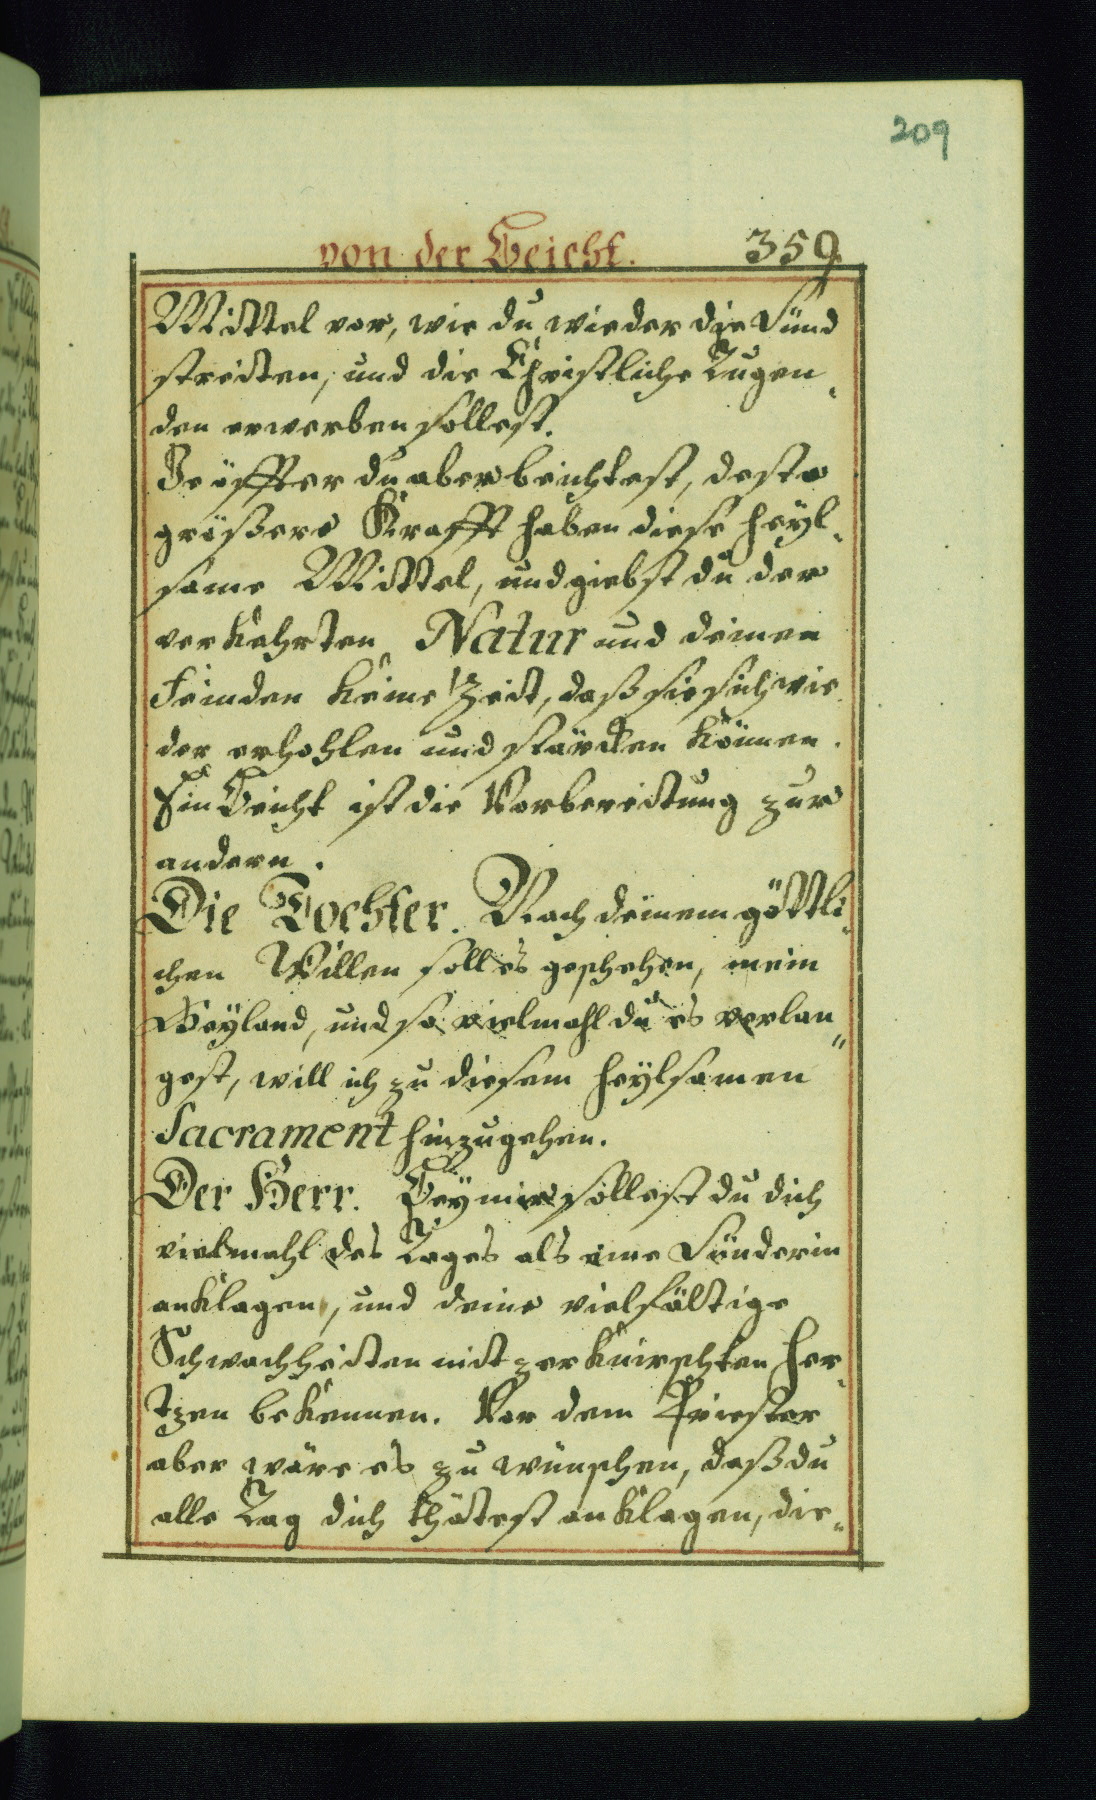 209
von der Beicht. 359.
Mittel vor, wie du wieder die Sünd
streitten, und die Christliche Tugen,
den erwerben sollest.
Je öffter du aber beichtest, desto
größere Krafft haben diese heyl,
same Mittel, und giebst du der
verkehrten Natur und deinen
Feinden keine Zeit, daß sie sich wie
der erhohlen und stärcken können.
Ein Beicht ist die Vorbereitung zur
andern.
Die Tochter. Nach deinem göttli,
chen Willen soll es geschehen, mein
Heyland, und so vielmahl du es verlan„
gest, will ich zu diesem heylsamen
Sacrament hinzugehen.
Der Herr. Bey mir sollest du dich
vielmahl des Tages als eine Sünderin
anklagen, und deine vielfältige
Schwachheiten mit zerknirschten Her,
tzen bekennen. Vor dem Priester
aber wäre es zu wünschen, daß du
alle Tag dich thätest anklagen, die„